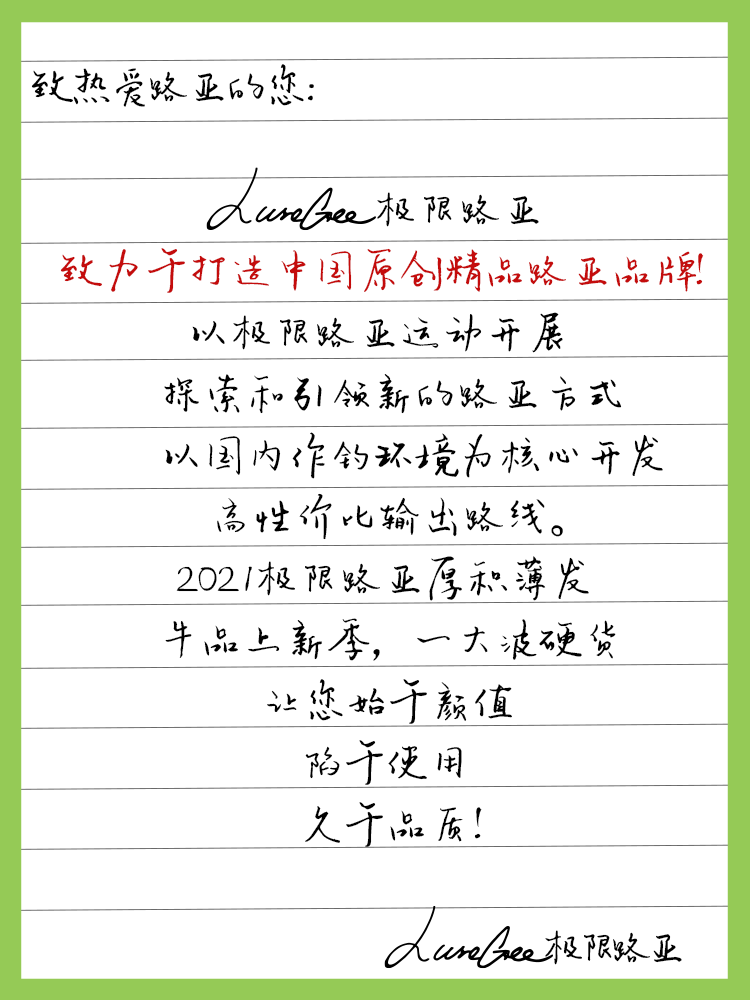 致热爱路亚的您:
LureGee极限路亚
致力于打造中国原创精品路亚品牌!
以极限路亚运动开展
探索和引领新的路亚方式
以国内作钓环境为核心开发
高性价比输出路线。
2021极限路亚厚积薄发
牛品上新季,一大波硬货
让您始于颜值
陷于使用
久于品质!
LureGee极限路亚